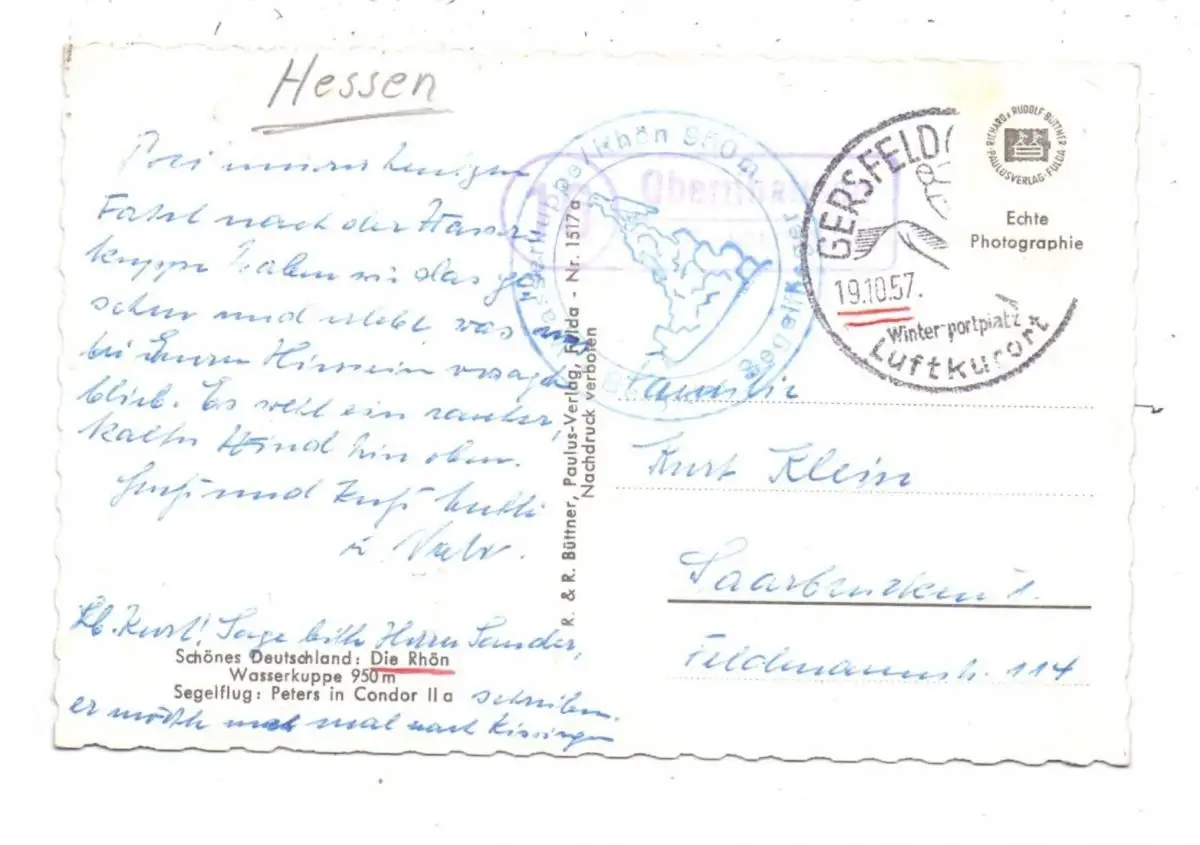 Hessen
Bei unserer heutigen
Fahrt nach der Wasser
kuppe haben wir das ge
sehen und erlebt was
bei Eurem Hiersein versagt
blieb. Es weht ein rauher,
kalter Wind hier oben.
Gruß und Kuß Mutti
u. Vater.
Lb. Kurt! Sage bitte Herrn Sander,
er möchte mal nach Kissingen
schreiben.
Schönes Deutschland: Die Rhön
Wasserkuppe 950 m
Segelflug: Peters in Condor II a
R. & R. Büttner, Paulus-Verlag, Fulda - Nr. 1517a
Nachdruck verboten
Wasserkuppe/Rhön 950 m
GERSFELD
19.10.57.
Wintersportplatz
Luftkurort
RICHARD & RUDOLF BÜTTNER
PAULUSVERLAG · FULDA
Echte
Photographie
Familie
Kurt Klein
Saarbrücken 1.
Feldmannstr. 114